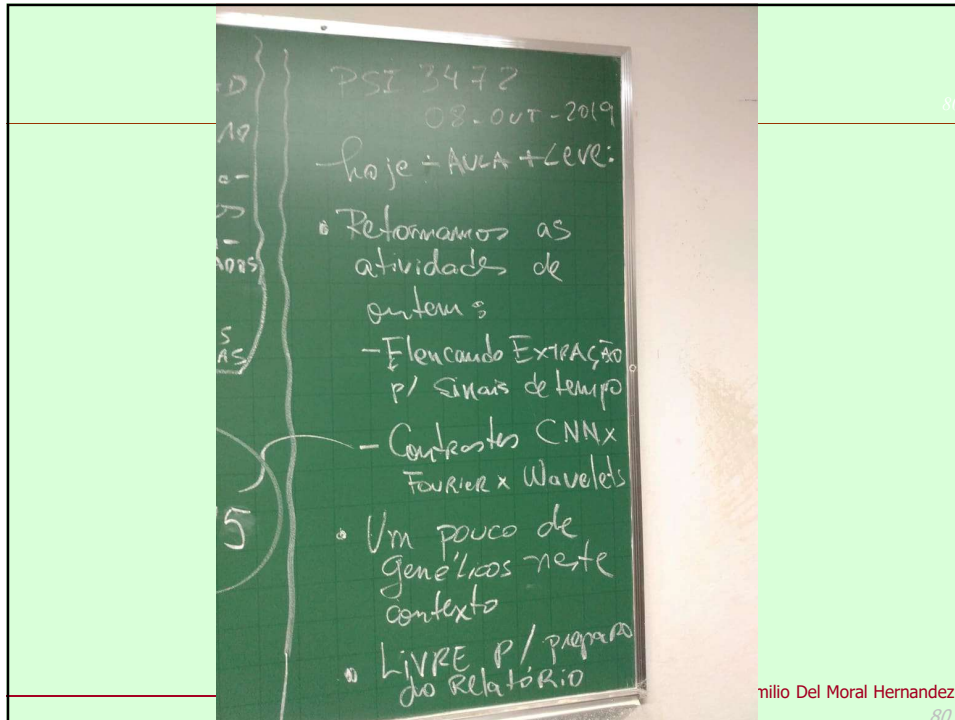 PSI 3472
08-OUT-2019
hoje - AULA + Leve:
• Retomamos as
atividades de
ontem:
- Elencando EXTRAÇÃO
p/ sinais de tempo
- Contrastes CNN x
FOURIER x Wavelets
• Um pouco de
genéticos neste
contexto
• LIVRE P/ preparo
do Relatório
D
10
e-
os
-
ADAS
S
AS
5
milio Del Moral Hernandez
80